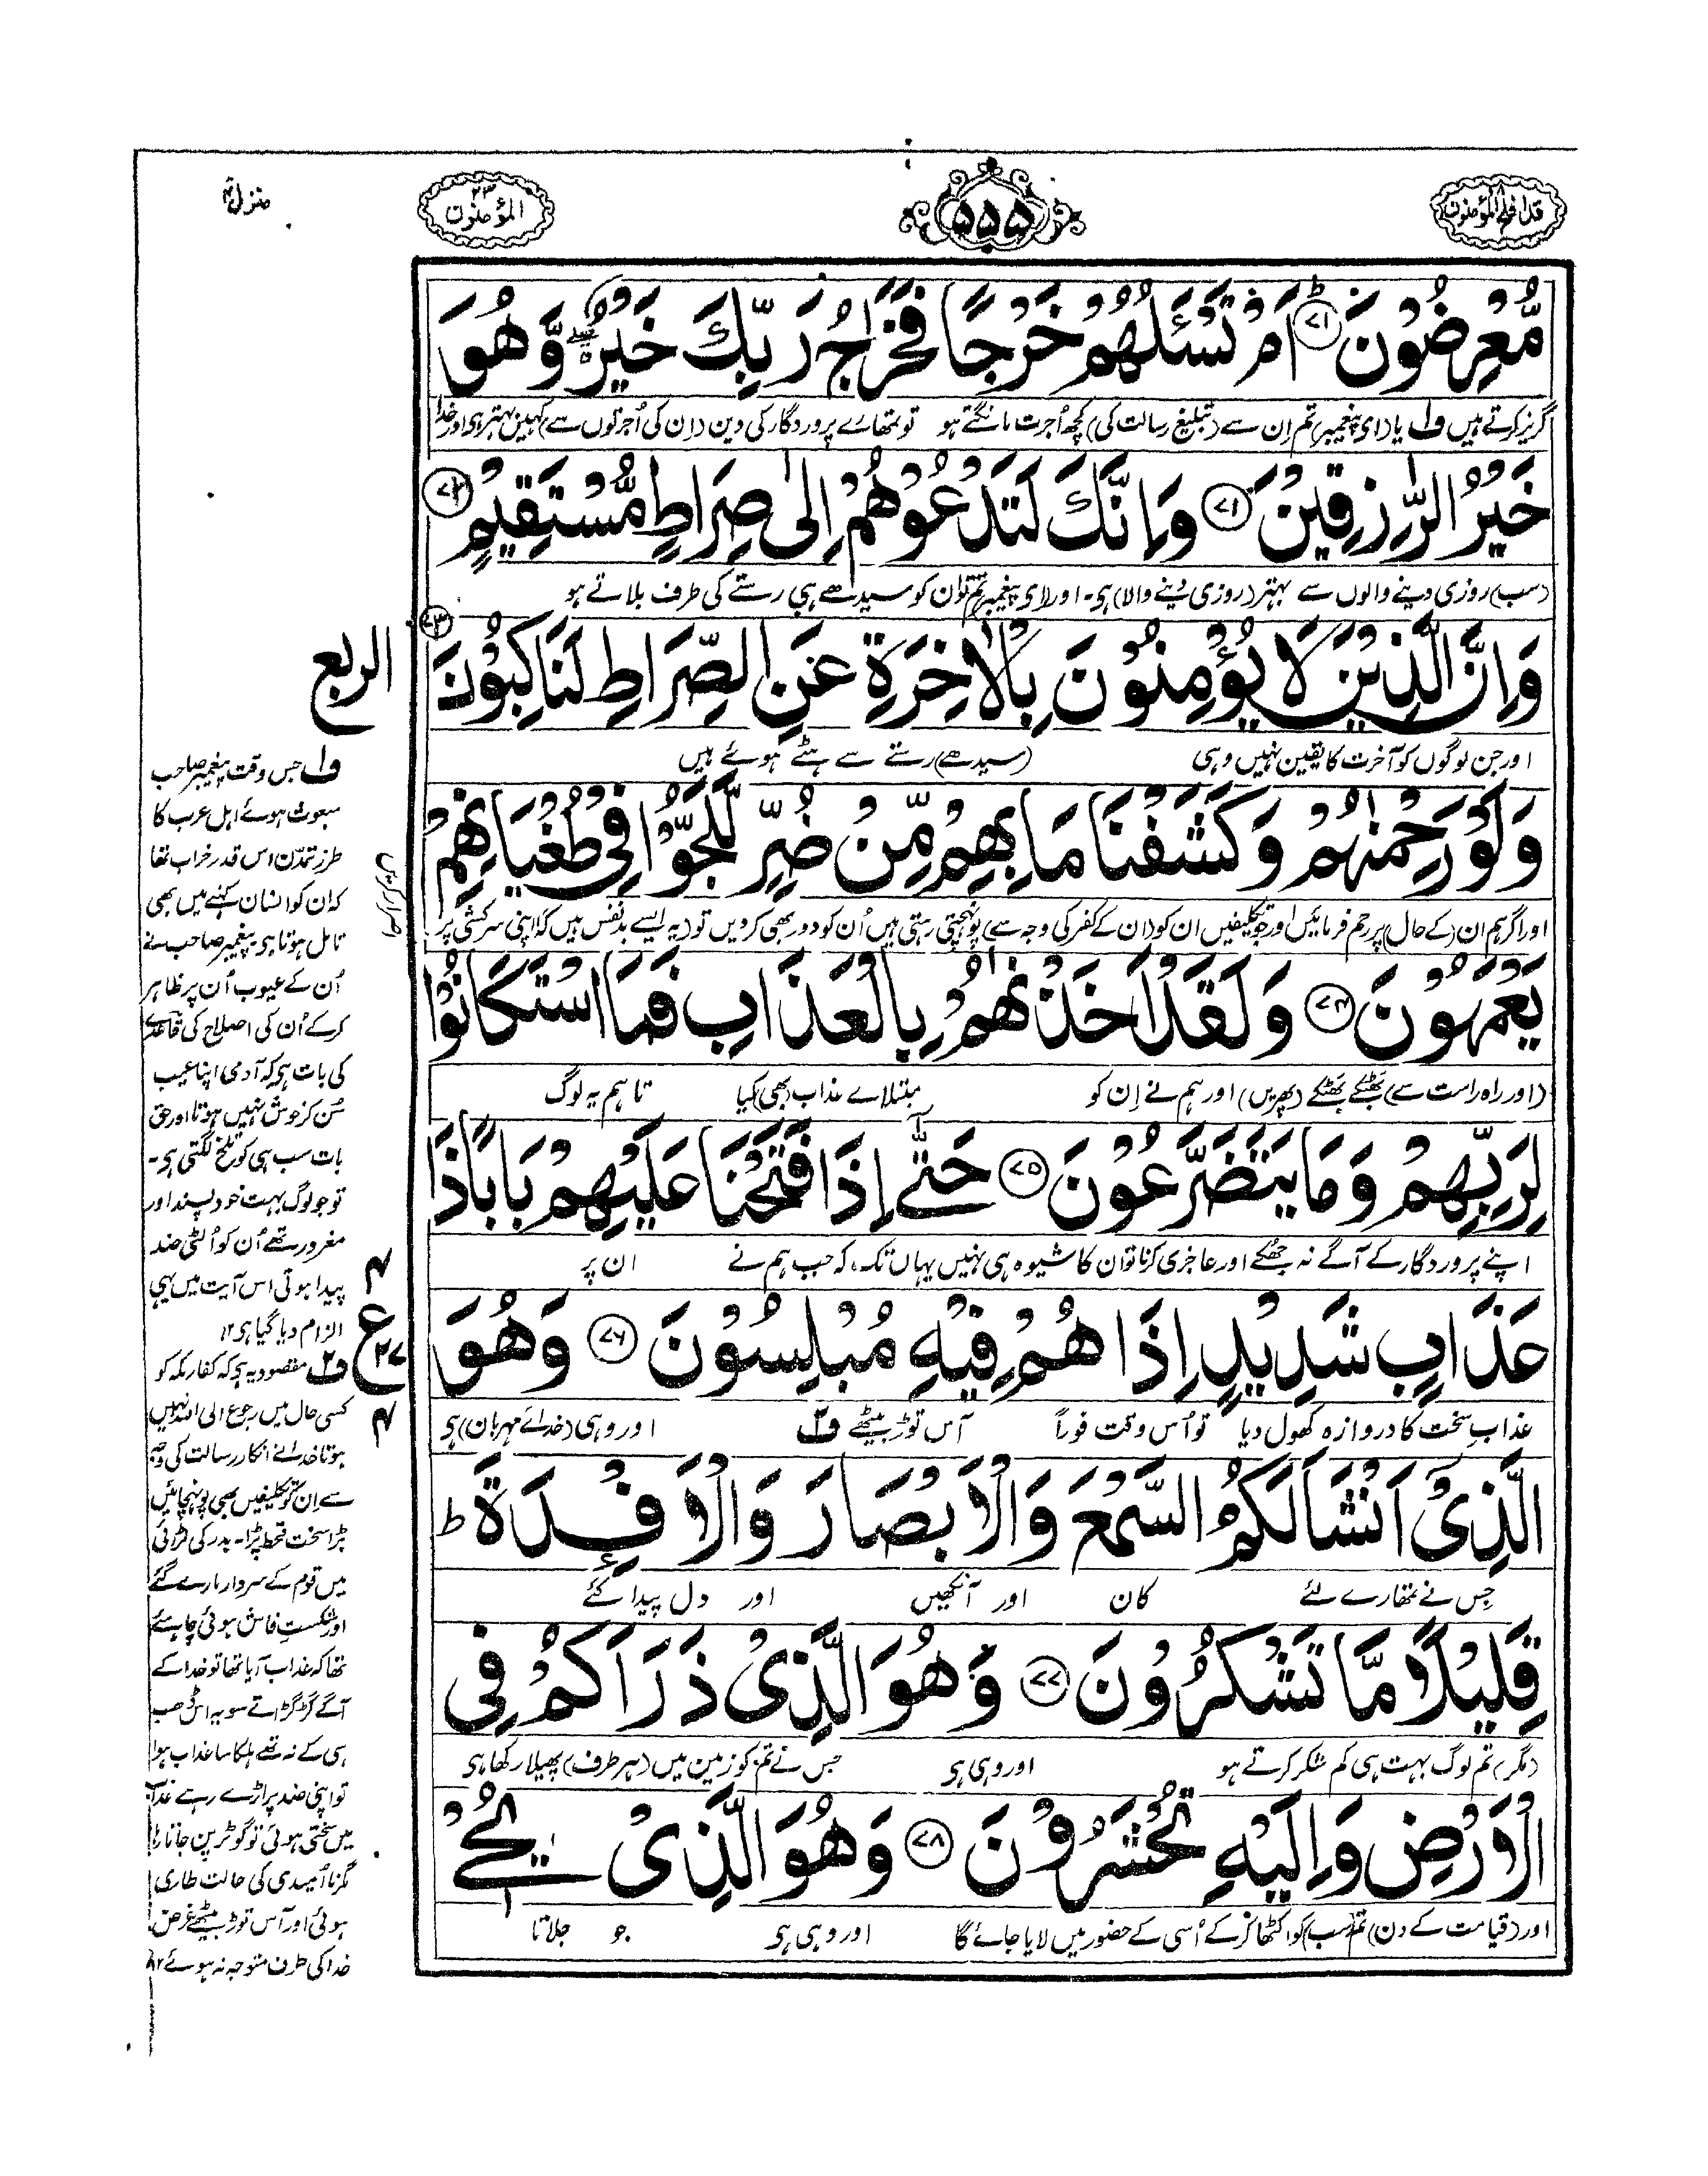 قد افلح المؤمنون ۱۸
۵۵۵
المؤمنون ۲۳
منزل ۴
مُّعْرِضُوْنَ ۞۷۱ اَمْ تَسْـَٔلُهُمْ خَرْجًا فَخَرَاجُ رَبِّكَ خَيْرٌ وَّهُوَ
گریز کرتے ہیں ف۱ یا (ای پیغمبر) تم اِن سے (تبلیغ رسالت کی) کچھ اُجرت مانگتے ہو تو تمھارے پروردگار کی دین (اِن کی اُجرتوں سے) کہیں بہتر ہی اور خدا
خَيْرُ الرّٰزِقِيْنَ ۞۷۲ وَاِنَّكَ لَتَدْعُوْهُمْ اِلٰى صِرَاطٍ مُّسْتَقِيْمٍ ۞۷۳
(سب) روزی دینے والوں سے بہتر (روزی دینے والا) ہی۔ اور (ای پیغمبر) تم تو اِن کو سیدھے ہی رستے کی طرف بلاتے ہو
وَاِنَّ الَّذِيْنَ لَا يُؤْمِنُوْنَ بِالْاٰخِرَةِ عَنِ الصِّرَاطِ لَنَاكِبُوْنَ
اور جن لوگوں کو آخرت کا یقین نہیں وہی (سیدھے) رستے سے ہٹے ہوئے ہیں
وَلَوْ رَحِمْنٰهُمْ وَكَشَفْنَا مَا بِهِمْ مِّنْ ضُرٍّ لَّلَجُّوْا فِيْ طُغْيَانِهِمْ
اور اگر ہم ان (کے حال) پر رحم فرمائیں اور جو تکلیفیں ان کو (ان کے کفر کی وجہ سے) پونہچتی رہتی ہیں اُن کو دور بھی کر دیں تو (یہ ایسے بدنفس ہیں کہ) اپنی سرکشی پر
اصرار کریں
يَعْمَهُوْنَ ۞۷۴ وَلَقَدْ اَخَذْنٰهُمْ بِالْعَذَابِ فَمَا اسْتَكَانُوْا
(اور راہ راست سے) بھٹکے بھٹکے (پھریں) اور ہم نے اِن کو مبتلاے عذاب (بھی) کیا تاہم یہ لوگ
لِرَبِّهِمْ وَمَا يَتَضَرَّعُوْنَ ۞۷۵ حَتّٰٓى اِذَا فَتَحْنَا عَلَيْهِمْ بَابًا ذَا
اپنے پروردگار کے آگے نہ جھکے اور عاجزی کرنا تو ان کا شیوہ ہی نہیں یہاں تک، کہ جب ہم نے ان پر
عَذَابٍ شَدِيْدٍ اِذَا هُمْ فِيْهِ مُبْلِسُوْنَ ۞۷۶ وَهُوَ
عذاب سخت کا دروازہ کھول دیا تو اُس وقت فوراً آس توڑ بیٹھے ف۲ اور وہی (خداے مہربان) ہی
الَّذِيْٓ اَنْشَاَ لَكُمُ السَّمْعَ وَالْاَبْصَارَ وَالْاَفْـِٕدَةَ ط
جس نے تمھارے لئے کان اور آنکھیں اور دل پیدا کئے
قَلِيْلًا مَّا تَشْكُرُوْنَ ۞۷۷ وَهُوَ الَّذِيْ ذَرَاَكُمْ فِي
(مگر) تم لوگ بہت ہی کم شکر کرتے ہو اور وہی ہی جس نے تم کو زمین میں (ہر طرف) پھیلا رکھا ہی
الْاَرْضِ وَاِلَيْهِ تُحْشَرُوْنَ ۞۷۸ وَهُوَ الَّذِيْ يُحْيٖ
اور (قیامت کے دن) تم (سب) کو اکٹھا کر کے اُسی کے حضور میں لایا جائے گا اور وہی ہی جو جلاتا
الربع
ف۱ جس وقت پیغمبر صاحب
مبعوث ہوئے اہل عرب کا
طرز تمدّن اس قدر خراب تھا
کہ ان کو انسان کہنے میں بھی
تامل ہوتا ہی پیغمبر صاحب نے
اُن کے عیوب اُن پر ظاہر
کر کے اُن کی اصلاح کی قاعدے
کی بات ہی کہ آدمی اپنا عیب
سُن کر خوش نہیں ہوتا اور حق
بات سب ہی کو تلخ لگتی ہی۔
تو جو لوگ بہت خود پسند اور
مغرور تھے اُن کو اُلٹی ضد
پیدا ہوتی اس آیت میں یہی
الزام دیا گیا ہی ۱۲
ف۲ مقصود یہ ہی کہ کفار مکہ کو
کسی حال میں رجوع الی اللہ نہیں
ہوتا خدا نے انکار رسالت کی وجہ
سے اِن کو تکلیفیں بھی پونہچائیں
بڑا سخت قحط پڑا۔ بدر کی لڑائی
میں قوم کے سردار مارے گئے
اور شکستِ فاش ہوئی چاہیے
تھا کہ عذاب آیا تھا تو خدا کے
آگے گڑگڑاتے سو یہ اس ڈھب
ہی کے نہ تھے ہلکا سا عذاب ہوا
تو اپنی ضد پر اڑے رہے عذاب
میں سختی ہوئی تو گو ٹرپن جاتا رہا
مگر نا اُمیدی کی حالت طاری
ہوئی اور آس توڑ بیٹھے غرض
خدا کی طرف متوجہ نہ ہوئے ۱۲
۴
ع
۲۷
۴